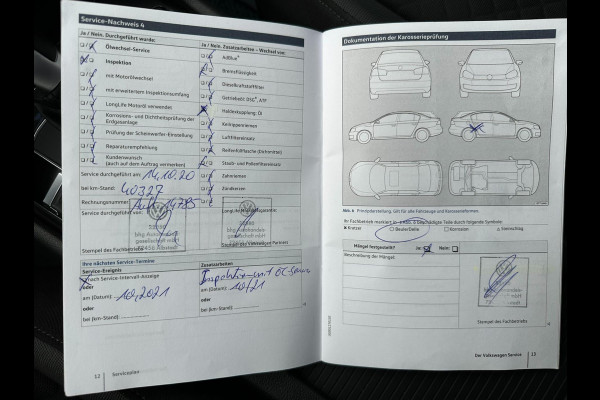 Service-Nachweis 4
Ja / Nein. Durchgeführt wurde:
Ölwechsel-Service
Inspektion
mit Motorölwechsel
mit erweitertem Inspektionsumfang
LongLife Motoröl verwendet
Korrosions- und Dichtheitsprüfung der
Erdgasanlage
Prüfung der Scheinwerfer-Einstellung
Reparaturempfehlung
Kundenwunsch
(auch auf dem Auftrag vermerken)
Service durchgeführt am: 14.10.20
bei km-Stand: 40327
Rechnungsnummer:
Service durchgeführt von:
Stempel des Fachbetriebs
Ja / Nein. Zusatzarbeiten – Wechsel von:
AdBlue®
Bremsflüssigkeit
Dieselkraftstofffilter
Getriebeöl: DSG®, ATF
Haldexkupplung: Öl
Keilrippenriemen
Luftfiltereinsatz
Reifenfüllflasche (Dichtmittel)
Staub- und Pollenfiltereinsatz
Zahnriemen
Zündkerzen
Ihre nächsten Service-Termine
Service-Ereignis
nach Service-Intervall-Anzeige
oder
am (Datum): 10.2021
oder
bei (km-Stand):
Zusatzarbeiten
am (Datum): 10/21
oder
bei (km-Stand):
12 Serviceplan
Dokumentation der Karosserieprüfung
Abb. 6 Prinzipdarstellung. Gilt für alle Fahrzeuge und Karosserieformen.
Ihr Fachbetrieb markiert in Abb. 6 beschädigte Teile durch folgende Symbole:
Kratzer
Beule/Delle
Korrosion
Steinschlag
Mängel festgestellt? Ja: Nein:
Beschreibung der Mängel:
Stempel des Fachbetriebs
Der Volkswagen Service 13